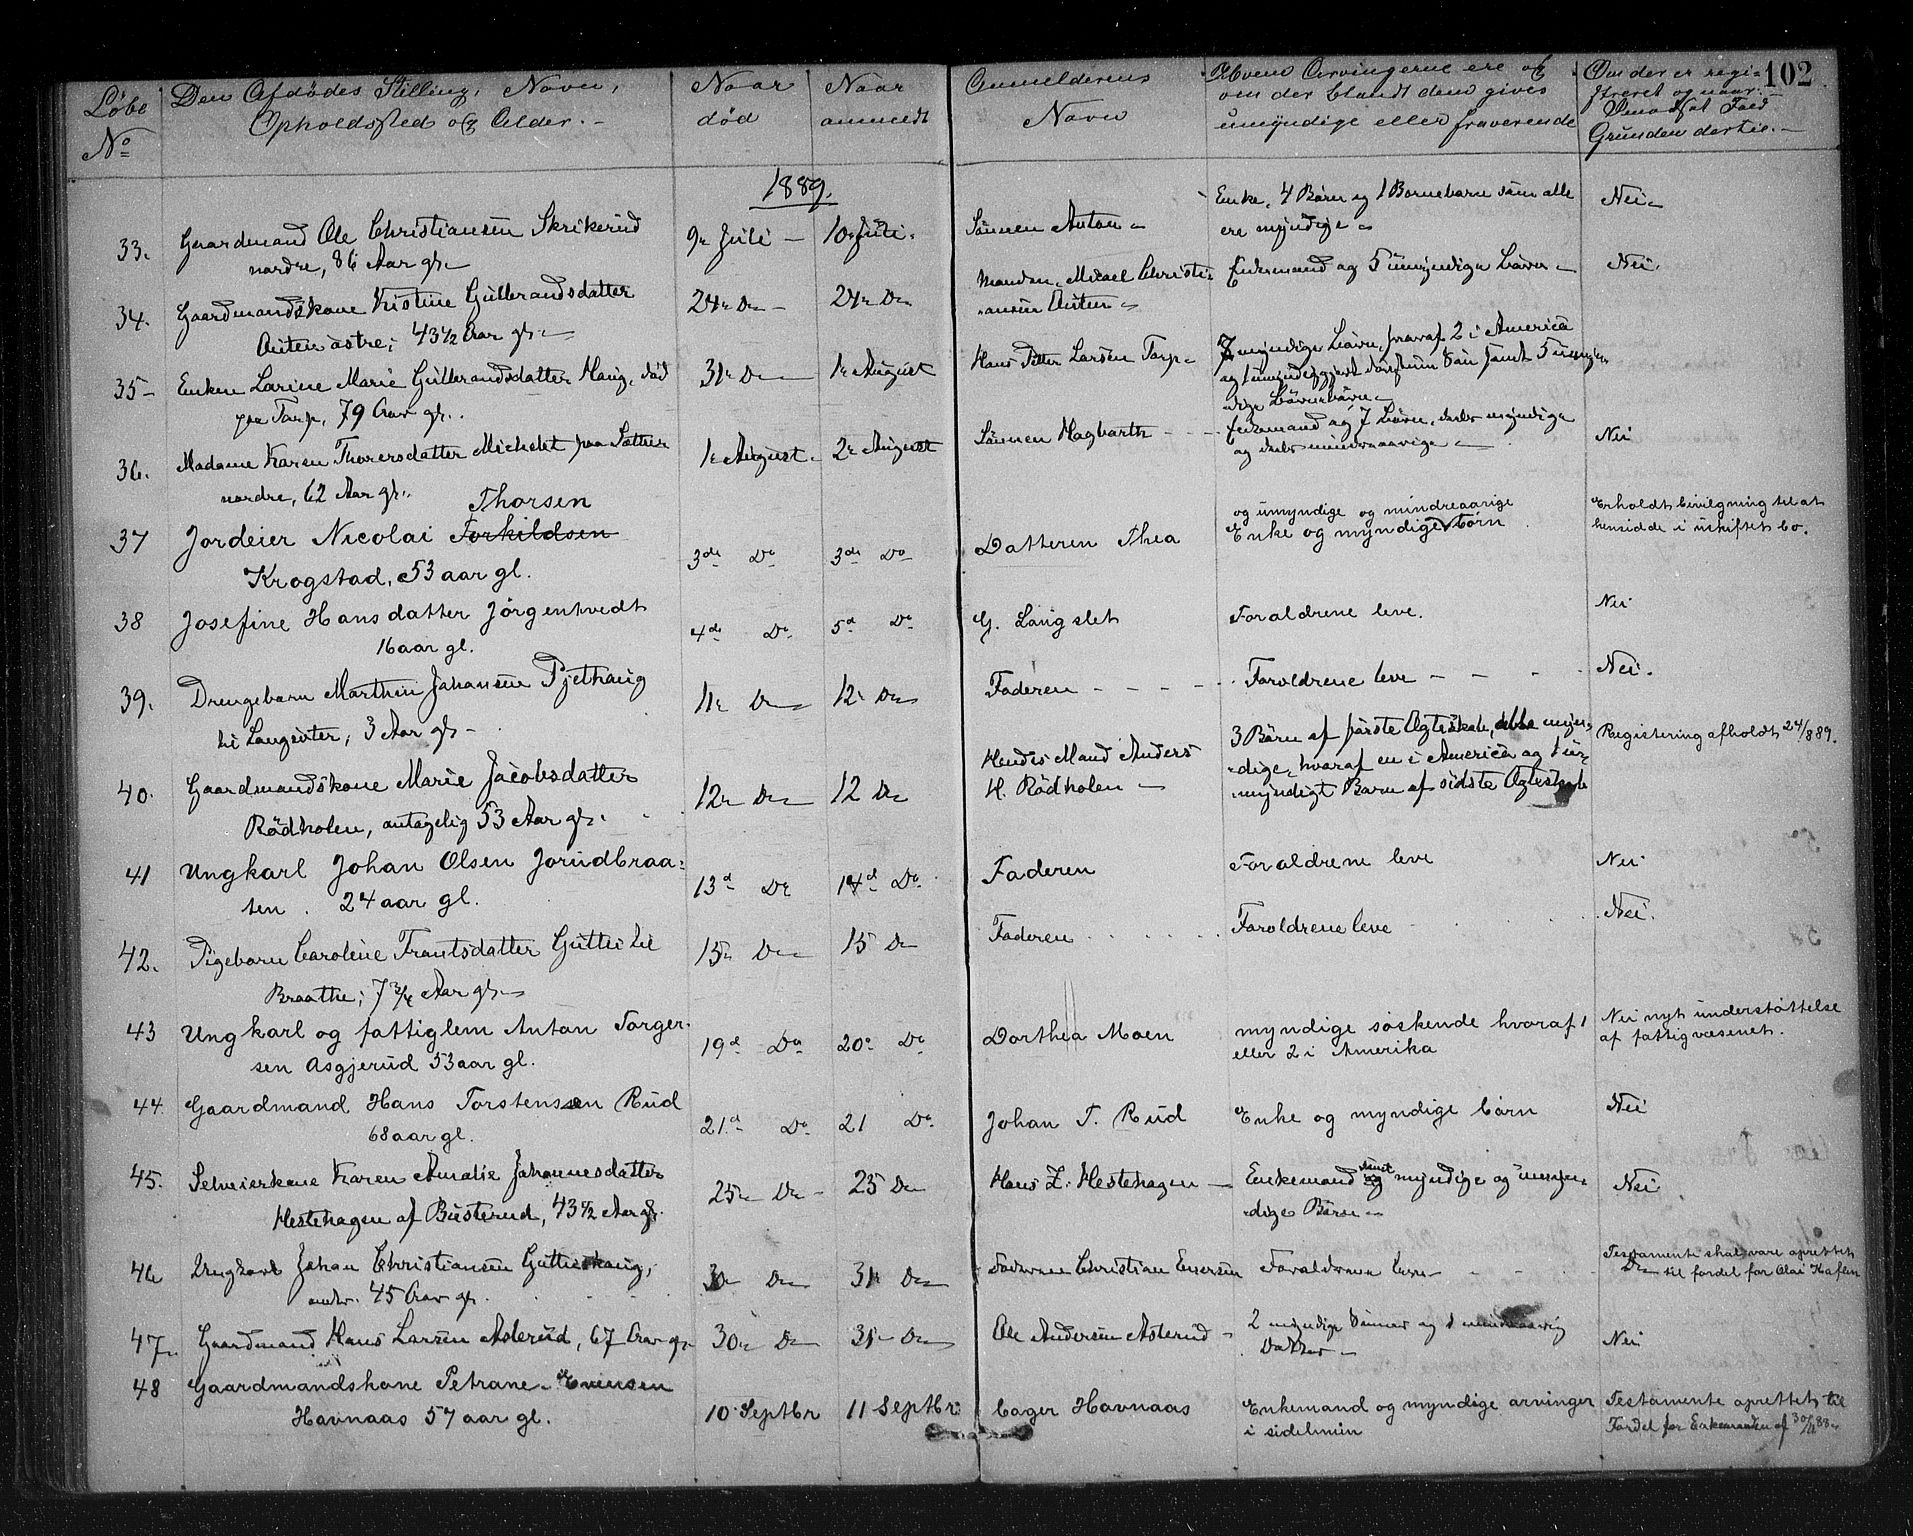 102
Løbe No
Den Afdødes Stilling, Navn,
Opholdssted og Alder.
Naar død
Naar anmeldt
Anmelderens Navn
Hvem Arvingerne ere og
om der blandt dem gives
umyndige eller fraværende
Om der er regi-
streret og naar.
Grunden dertil.
1889.
33. Gaardmand Ole Christiansen Skrikerud
nordre, 86 Aar gl.
9de Juli
10de Juli
Sønnen Anton
Enke, 4 Børn og 1 Barnebarn som alle
ere myndige
Nei
34. Gaardmandskone Kristine Gulbrandsdatter
Auten østre, 43 1/2 Aar gl.
24de Do
24de Do
Manden, Micael Christi-
ansen Auten
Enkemand og 5 umyndige Børn
Nei.
35 Enken Larine Marie Gulbrandsdatter Haug, død
paa Tarp, 79 Aar gl.
31te Do
1ste August
Hans Petter Larsen Tarp
7 myndige Børn, hvoraf 2 i America
og 1 Søn samt 5 umyn-
dige Børnebørn
36. Madame Karen Thorersdatter Michelet paa Sætter
nordre, 62 Aar gl.
1ste August
2den August
Sønnen Hagbarth
Enkemand og 7 Børn, dels myndige
og dels mindreaarige
Nei
37 Jordeier Nicolai Torkildsen Thorsen
Krogstad, 53 aar gl.
3die Do
3die Do
Datteren Thea
og umyndige og mindreaarige
Enke og myndige børn
Erholdt bevilgning til at
hensidde i uskiftet bo.
38 Josefine Hansdatter Jørgentvedt
16 aar gl.
4de Do.
5d Do
G. Langslet
Forældrene leve.
Nei
39. Drengebarn Marthin Johansen Pjethaug
til Langsæter, 3 Aar gl.
11te Do
12te Do
Faderen
Forældrene leve
Nei.
40. Gaardmandskone Marie Jacobsdatter
Rødholen, antagelig 53 Aar gl.
12te Do
12 Do
Hendes Mand Anders
H. Rødholen
3 Børn af første Ægteskab, alle myn-
dige, hvoraf en i America og 1 u-
myndigt Barn af sidste Ægteskab
Registering afholdt 24/8 89.
41 Ungkarl Johan Olsen Jorudbraa-
ten. 24 aar gl.
13d Do
14d Do
Faderen
Forældrene leve
Nei
42. Pigebarn Caroline Frantsdatter Guttu til
Braathe, 7 3/4 Aar gl.
15de Do
15 Do
Faderen
Forældrene leve
Nei.
43 Ungkarl og fattiglem Anton Torger-
sen Asgjerud 53 aar gl.
19d Do
20d Do
Dorthea Moen
myndige søskende hvoraf 1
eller 2 i Amerika
Nei nyt understøttelse
af fattigvæsenet.
44. Gaardmand Hans Torstensen Rud
68 aar gl.
21d Do
21 Do.
Johan T. Rud
Enke og myndige børn
Nei
45. Selveierkone Karen Amalie Johannesdatter
Hestehagen af Busterud, 43 1/2 Aar gl.
25de Do
25 Do
Hans Z. Hestehagen
Enkemand samt myndige og umyn-
dige Børn
Nei
46 Ungkarl Johan Christiansen Guttuhaug,
45 Aar gl.
30 Do
31te Do
Faderen Christian Enersen
Forældrene leve
Testamente skal være oprettet
til fordel for Olai Haflen
47. Gaardmand Hans Larsen Asterud, 67 Aar gl.
30te Do
31te Do
Ole Andersen Asterud
2 myndige Sønner og 1 mindreaarig
Datter
Nei
48 Gaardmandskone Petrane Evensen
Havnaas 57 aar gl.
10 Septbr
11 Septbr
Cager Havnaas
Enkemand og myndige arvinger
i sidelinien
Testamente oprettet til
Fordel for Enkemanden af 30/11 88